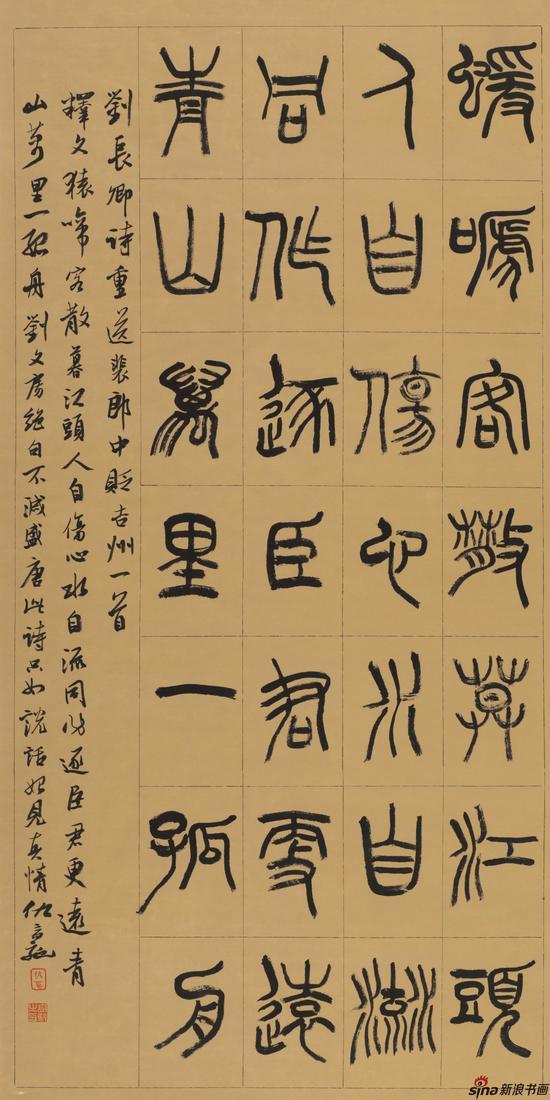 蝯嗁客散莫江頭
人自傷心水自流
同作逐臣君更遠
青山萬里一孤舟
劉長卿詩重送裴郎中貶吉州一首
釋文猿啼客散暮江頭人自傷心水自流同作逐臣君更遠青
山萬里一孤舟劉文房絕句不減盛唐此詩只如說話見真情
sina新浪书画